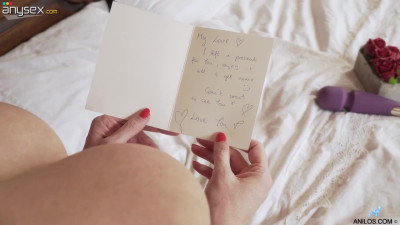 anysex.com
My Love
I left a present
for the
until I get home
Can't wait
to see You
Love You
ANILOS.COM